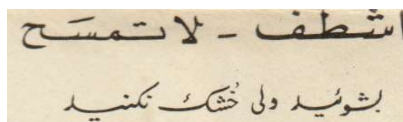 اشطف - لا تمسَح
بشوئید ولی خُشک نکنید